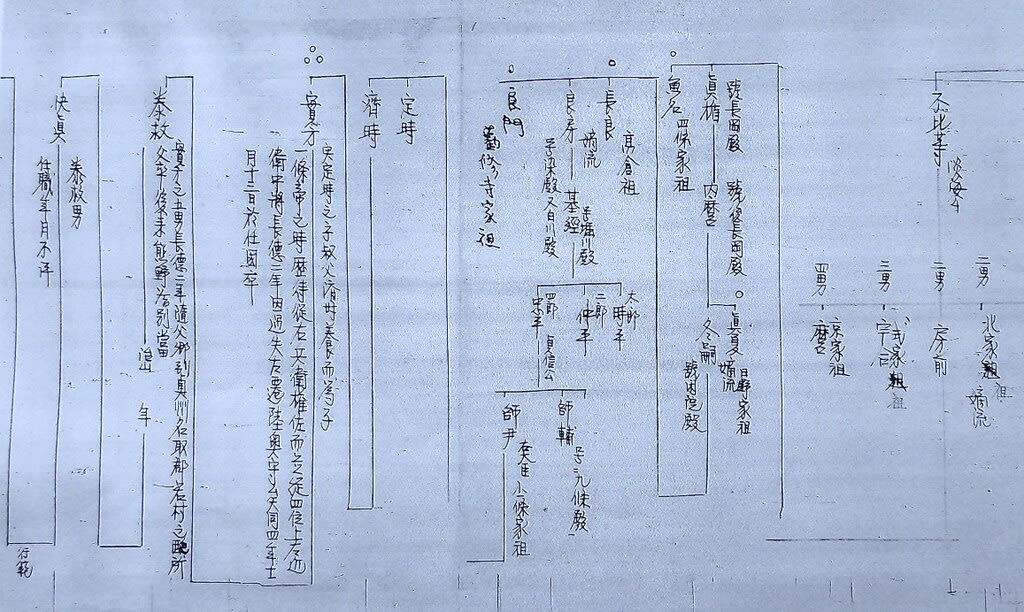 不比等
淡海公
二男
北家祖
嫡流
二男
房前
三男
式家祖
宇合
四男
京家祖
麿
號長岡殿
眞楯
號後長岡殿
内麿
眞夏
日野家祖
嫡流
冬嗣
號閑院殿
魚名
四條家祖
長良
高倉祖
嫡流
良房
号染殿又白川殿
基經
号堀川殿
太郎
時平
二郎
仲平
四郎
忠平
貞信公
良門
勸修寺家祖
師輔
号九條殿
師尹
小一條家祖
定時
濟時
實方
実定時之子叔父済時養而為子
一條帝之時歴侍従右兵衛権佐而
従四位上左近
衛中將長德元年
陸奥守
月十三日於任國卒
泰救
實方之五男長德二年隨父
奥州名取郡
村之配所
父卒後来熊野
別當
治山
年
快眞
泰救男
任職年月不詳
行範